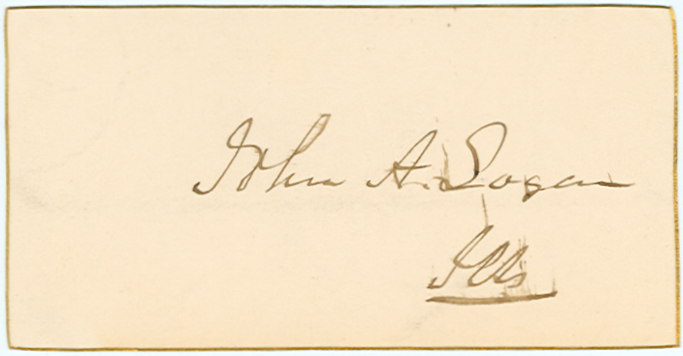 John A. Logan
Ills